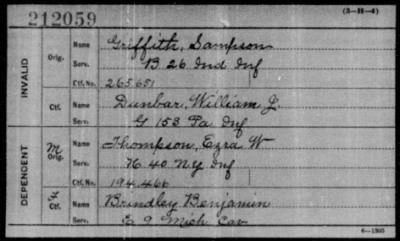 212059 (3-H-4)
INVALID
Orig. Name Griffith, Sampson
Serv. B 26 Ind Inf
Ctf. No. 265651
Ctf. Name Dunbar, William J.
Serv. G 153 Pa Inf
DEPENDENT
M Orig. Name Thompson, Ezra W
Serv. K 40 N.Y. Inf
Ctf. No. 194,466
F Ctf. Name Brindley Benjamin
Serv. 9 Mich Cav